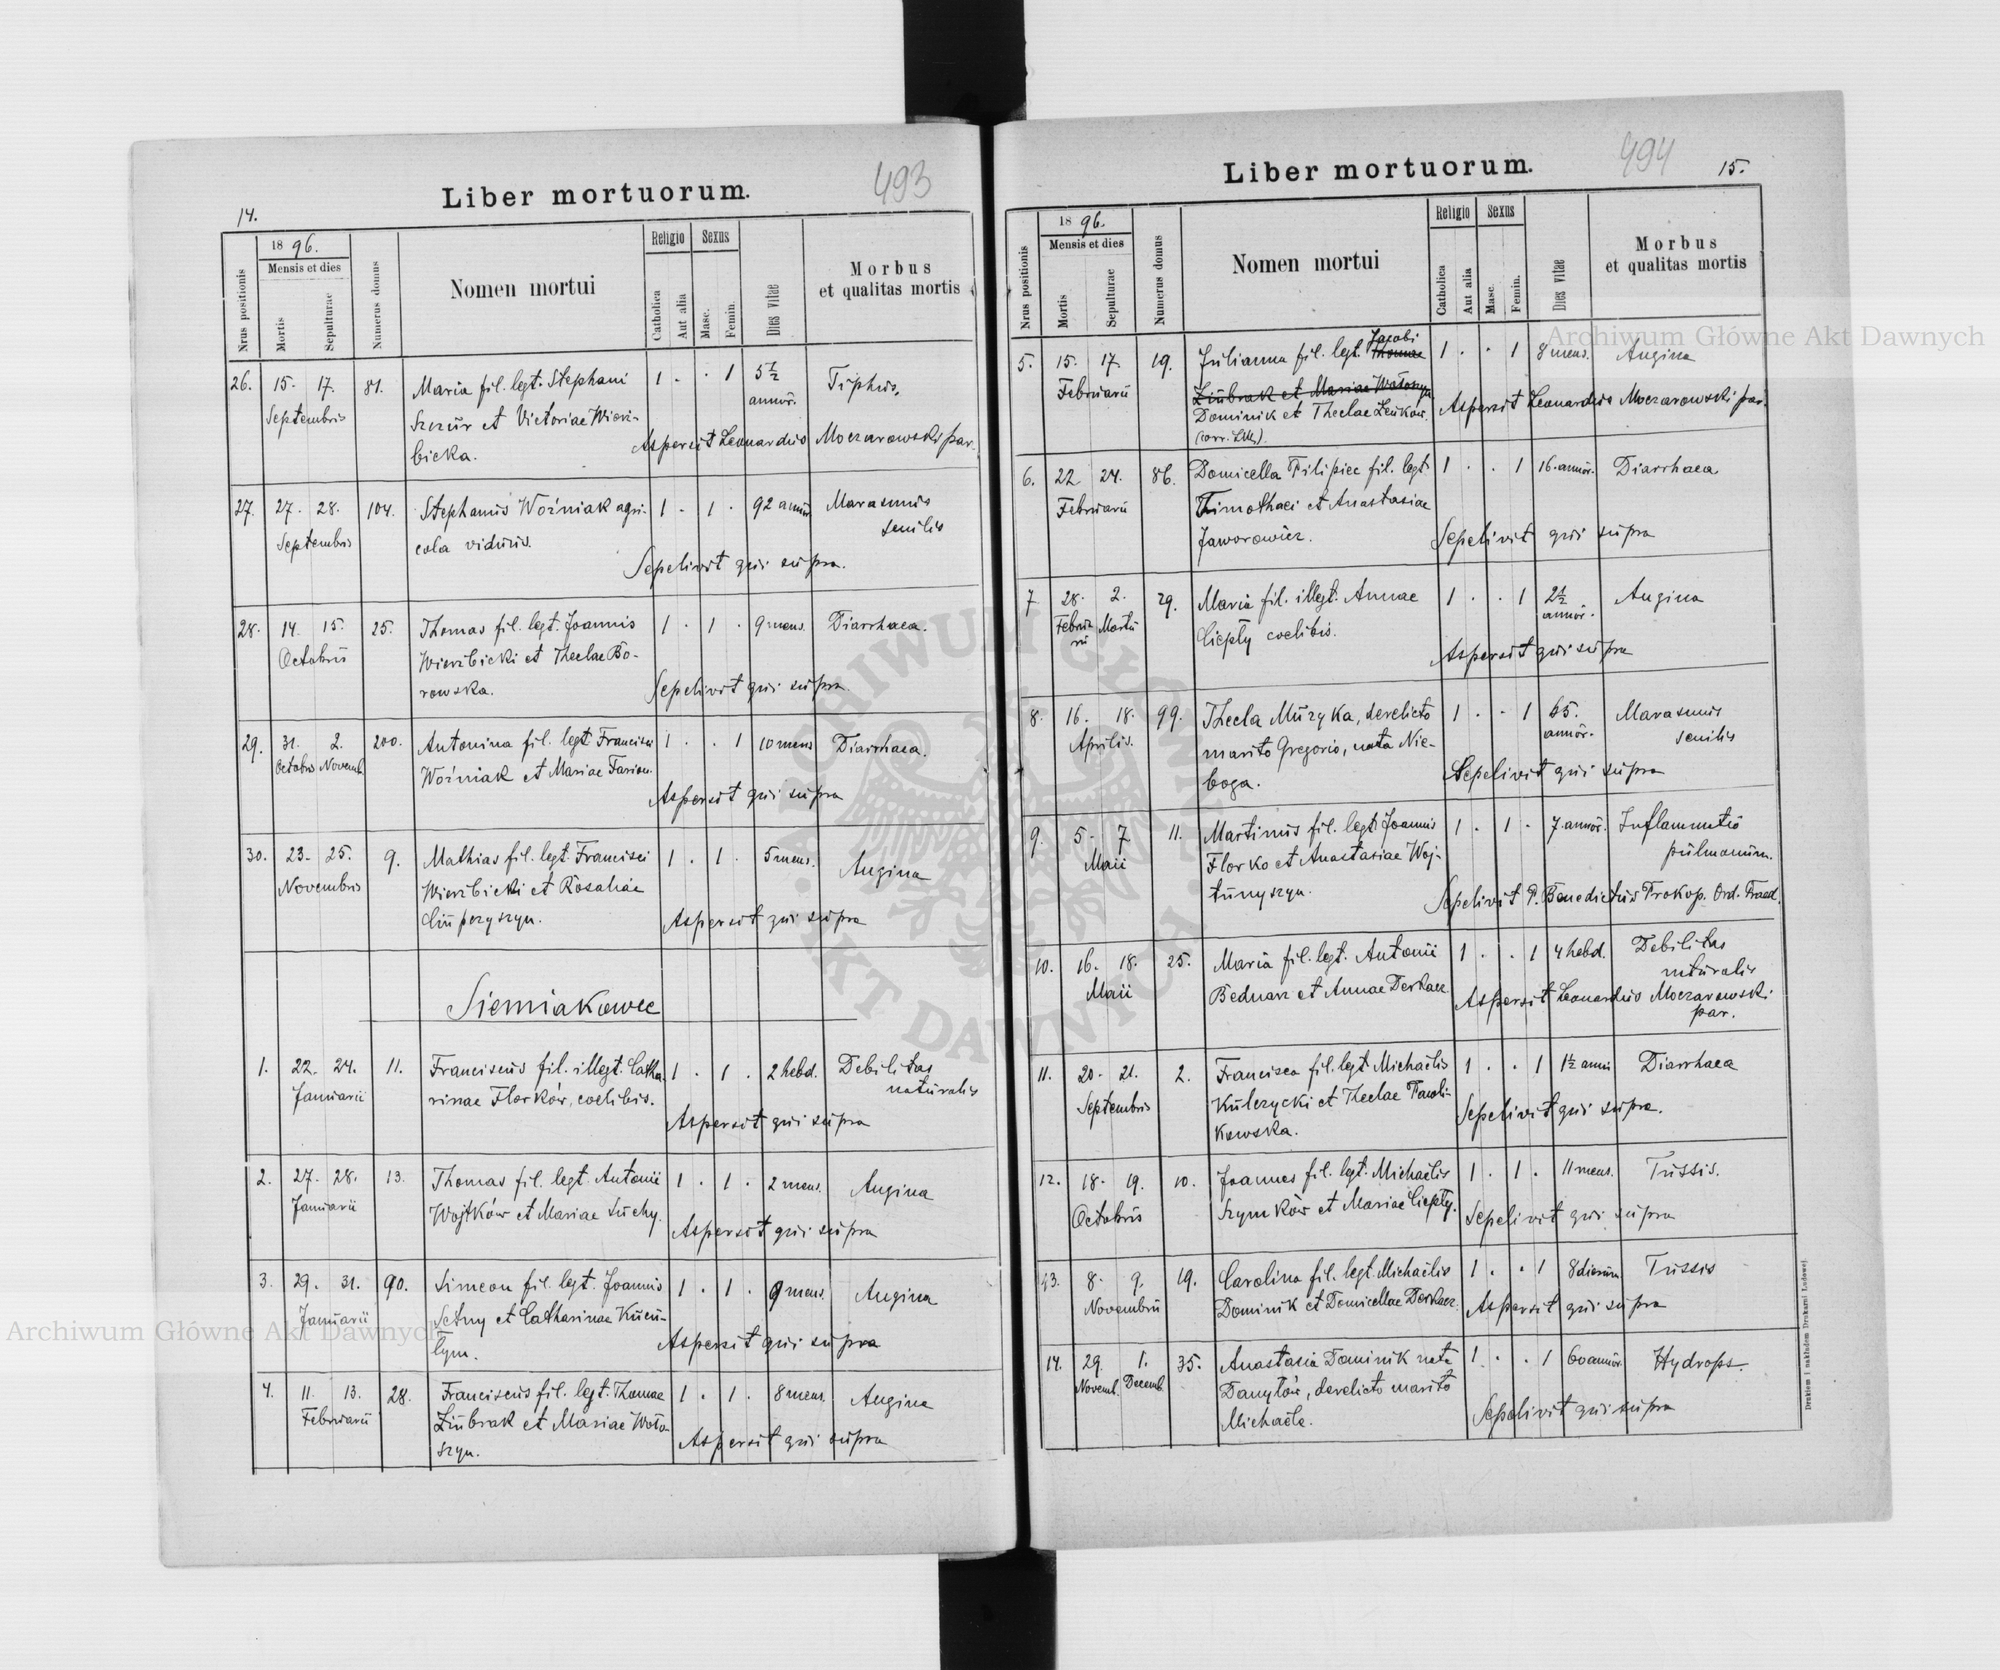 493
Liber mortuorum.
14.
Nrus positionis
18 96.
Mensis et dies
Mortis
Sepulturae
Numerus domus
Nomen mortui
Religio
Catholica
Aut alia
Sexus
Masc.
Femin.
Dies vitae
Morbus
et qualitas mortis
26. 15. 17. 81. Maria fil. legt. Stephani 1 . . 1 5 1/2 Tiphus,
Septembris Szczúr et Victoriae Wierz- annor.
bicka. Aspersit Leonardus Moczarowski par.
27. 27. 28. 104. Stephanus Woźniak agri- 1 . 1 . 92 annor Marasmus
Septembris cola viduus. senilis
Sepelivit qui supra.
28. 14. 15. 25. Thomas fil. legt. Joannis 1 . 1 . 9 mens. Diarrhaea.
Octobris Wierzbicki et Theclae Bo-
rowska. Sepelivit qui supra.
29. 31. 2. 200. Antonina fil. legt. Francisci 1 . . 1 10 mens Diarrhaea.
Octobris Novemb. Woźniak et Mariae Farion.
Aspersit qui supra
30. 23. 25. 9. Mathias fil. legt. Francisci 1 . 1 . 5 mens. Angina
Novembris Wierzbicki et Rosaliae
Ciuperzyszyn. Aspersit qui supra
Siemiakowce
1. 22. 24. 11. Franciscus fil. illegt. Catha- 1 . 1 . 2 hebd. Debilitas
Januarii rinae Florków, coelibis. naturalis
Aspersit qui supra
2. 27. 28. 13. Thomas fil. legt. Antonii 1 . 1 . 2 mens. Angina
Januarii Wojtków et Mariae Suchy.
Aspersit qui supra
3. 29. 31. 90. Simeon fil. legt. Joannis 1 . 1 . 9 mens. Angina
Januarii Setny et Catharinae
Aspersit qui supra
4. 11. 13. 28. Franciscus fil. legt. Thomae 1 . 1 . 8 mens. Angina
Februarii Ziubrak et Mariae Woło-
szyn. Aspersit qui supra
494
Liber mortuorum.
15.
Nrus positionis
18 96.
Mensis et dies
Mortis
Sepulturae
Numerus domus
Nomen mortui
Religio
Catholica
Aut alia
Sexus
Masc.
Femin.
Dies vitae
Morbus
et qualitas mortis
Jacobi
5. 15. 17. 19. Julianna fil. legt. Thomae 1 . . 1 8 mens. Angina
Februarii Ziubrak et Mariae Wołoszyn
Dominik et Theclae Leńków. Aspersit Leonardus Moczarowski par.
6. 22 24. 86. Domicella Filipiec fil. legt. 1 . . 1 16. annor. Diarrhaea
Februarii Timothaei et Anastasiae
Jaworowicz. Sepelivit qui supra
7 28. 2. 29. Maria fil. illegt. Annae 1 . . 1 2 1/2 Angina
Februarii Martii Ciepły coelibis. annor.
Aspersit qui supra
8. 16. 18. 99. Thecla Muzyka, derelicto 1 . . 1 65. Marasmus
Aprilis. marito Gregorio, nata Nie- annor. senilis
boga. Sepelivit qui supra
9. 5. 7 11. Martinus fil. legt. Joannis 1 . 1 . 7. annor. Inflammatio
Maii Florko et Anastasiae Woj- pulmonum.
tunyszyn. Sepelivit P. Benedictus Prokop. Ord. Praed.
10. 16. 18. 25. Maria fil. legt. Antonii 1 . . 1 4 hebd. Debilitas
Maii Bednarz et Annae Derkacz. naturalis
Aspersit Leonardus Moczarowski
par.
11. 20. 21. 2. Francisca fil. legt. Michaëlis 1 . . 1 1 1/2 anni Diarrhaea
Septembris Kulczycki et Theclae Pawli-
kowska. Sepelivit qui supra.
12. 18. 19. 10. Joannes fil. legt. Michaëlis 1 . 1 . 11 mens. Tussis.
Octobris Szymków et Mariae Ciepły. Sepelivit qui supra
13. 8. 9. 19. Carolina fil. legt. Michaëlis 1 . . 1 8 dierum Tussis
Novembris Dominik et Domicellae Derkacz. Aspersit qui supra
14. 29. 1. 35. Anastasia Dominik nata 1 . . 1 60 annor. Hydrops.
Novemb. Decemb. Danyłów, derelicto marito
Michaële. Sepelivit qui supra
Drukiem i nakładem Drukarni Ludowej.
Archiwum Główne Akt Dawnych
Archiwum Główne Akt Dawnych
ARCHIWUM GŁÓWNE AKT DAWNYCH